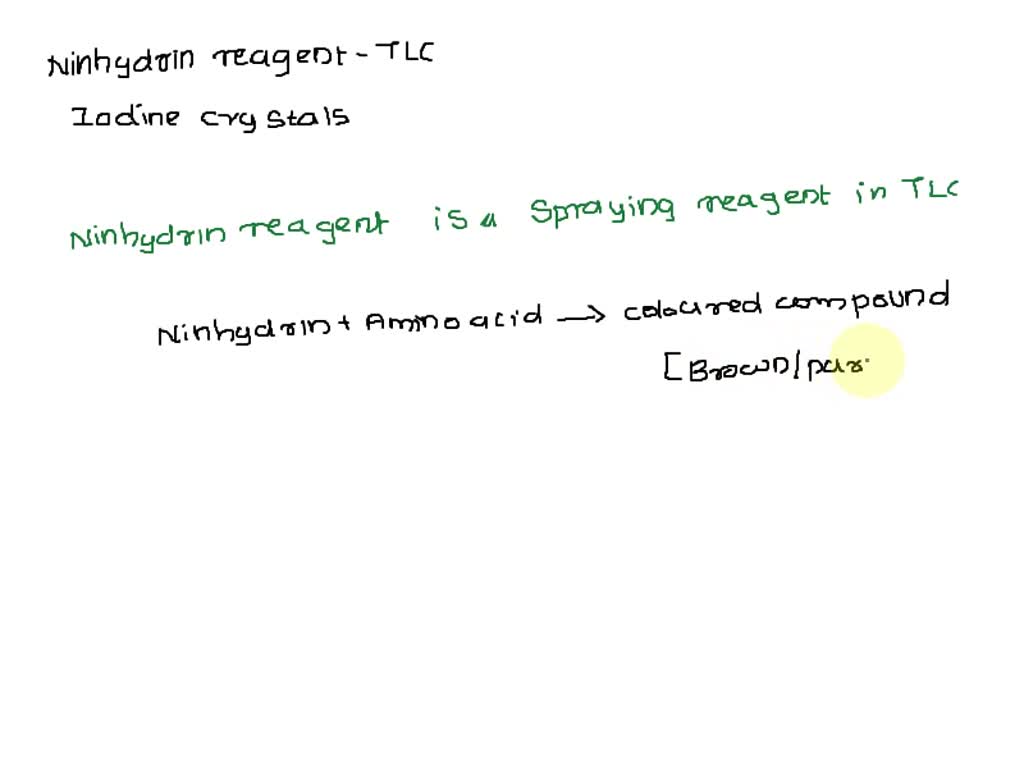 Ninhydrin reagent - TLC
Iodine crystals
Ninhydrin reagent is a Spraying reagent in TLC
Ninhydrin + Amino acid → coloured compound
[Brown/pur